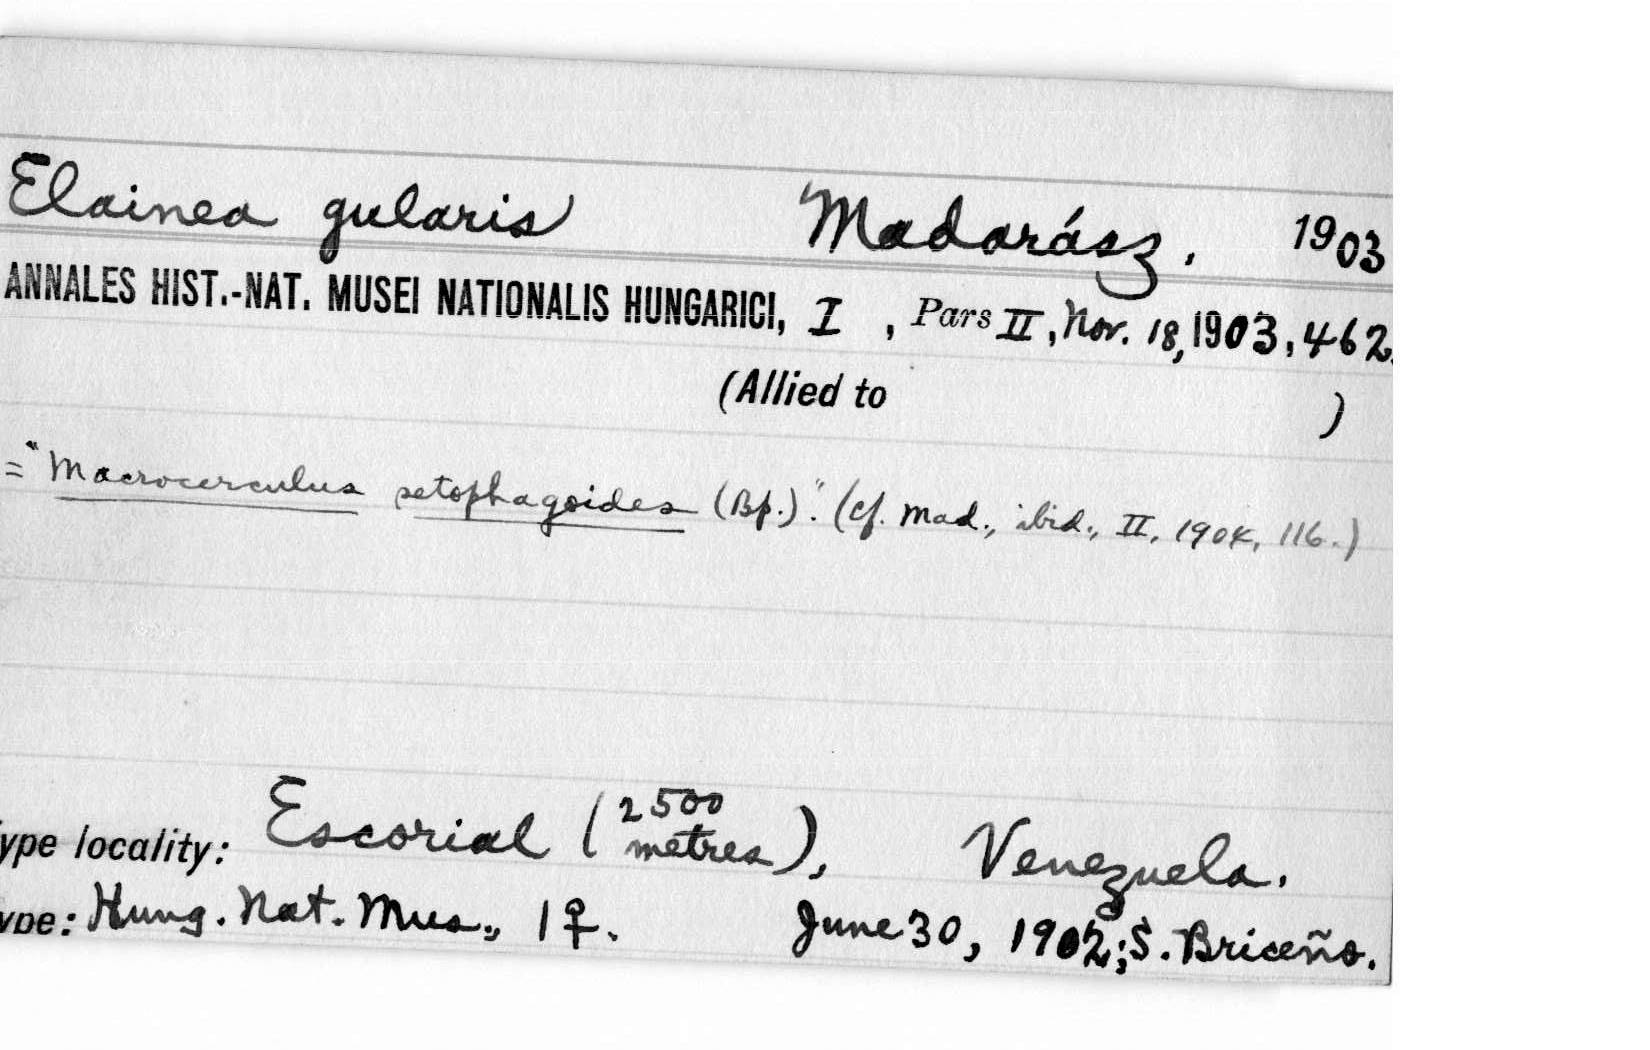 Elainea gularis Madarász. 1903
ANNALES HIST.-NAT. MUSEI NATIONALIS HUNGARICI, I , Pars II, Nov. 18, 1903, 462.
(Allied to )
="Macrocerculus setophagoides (Bp.)". (cf. Mad., ibid., II, 1904, 116.)
ype locality: Escorial (2500 metres), Venezuela.
ype: Hung. Nat. Mus., 1♀. June 30, 1902; S. Briceño.